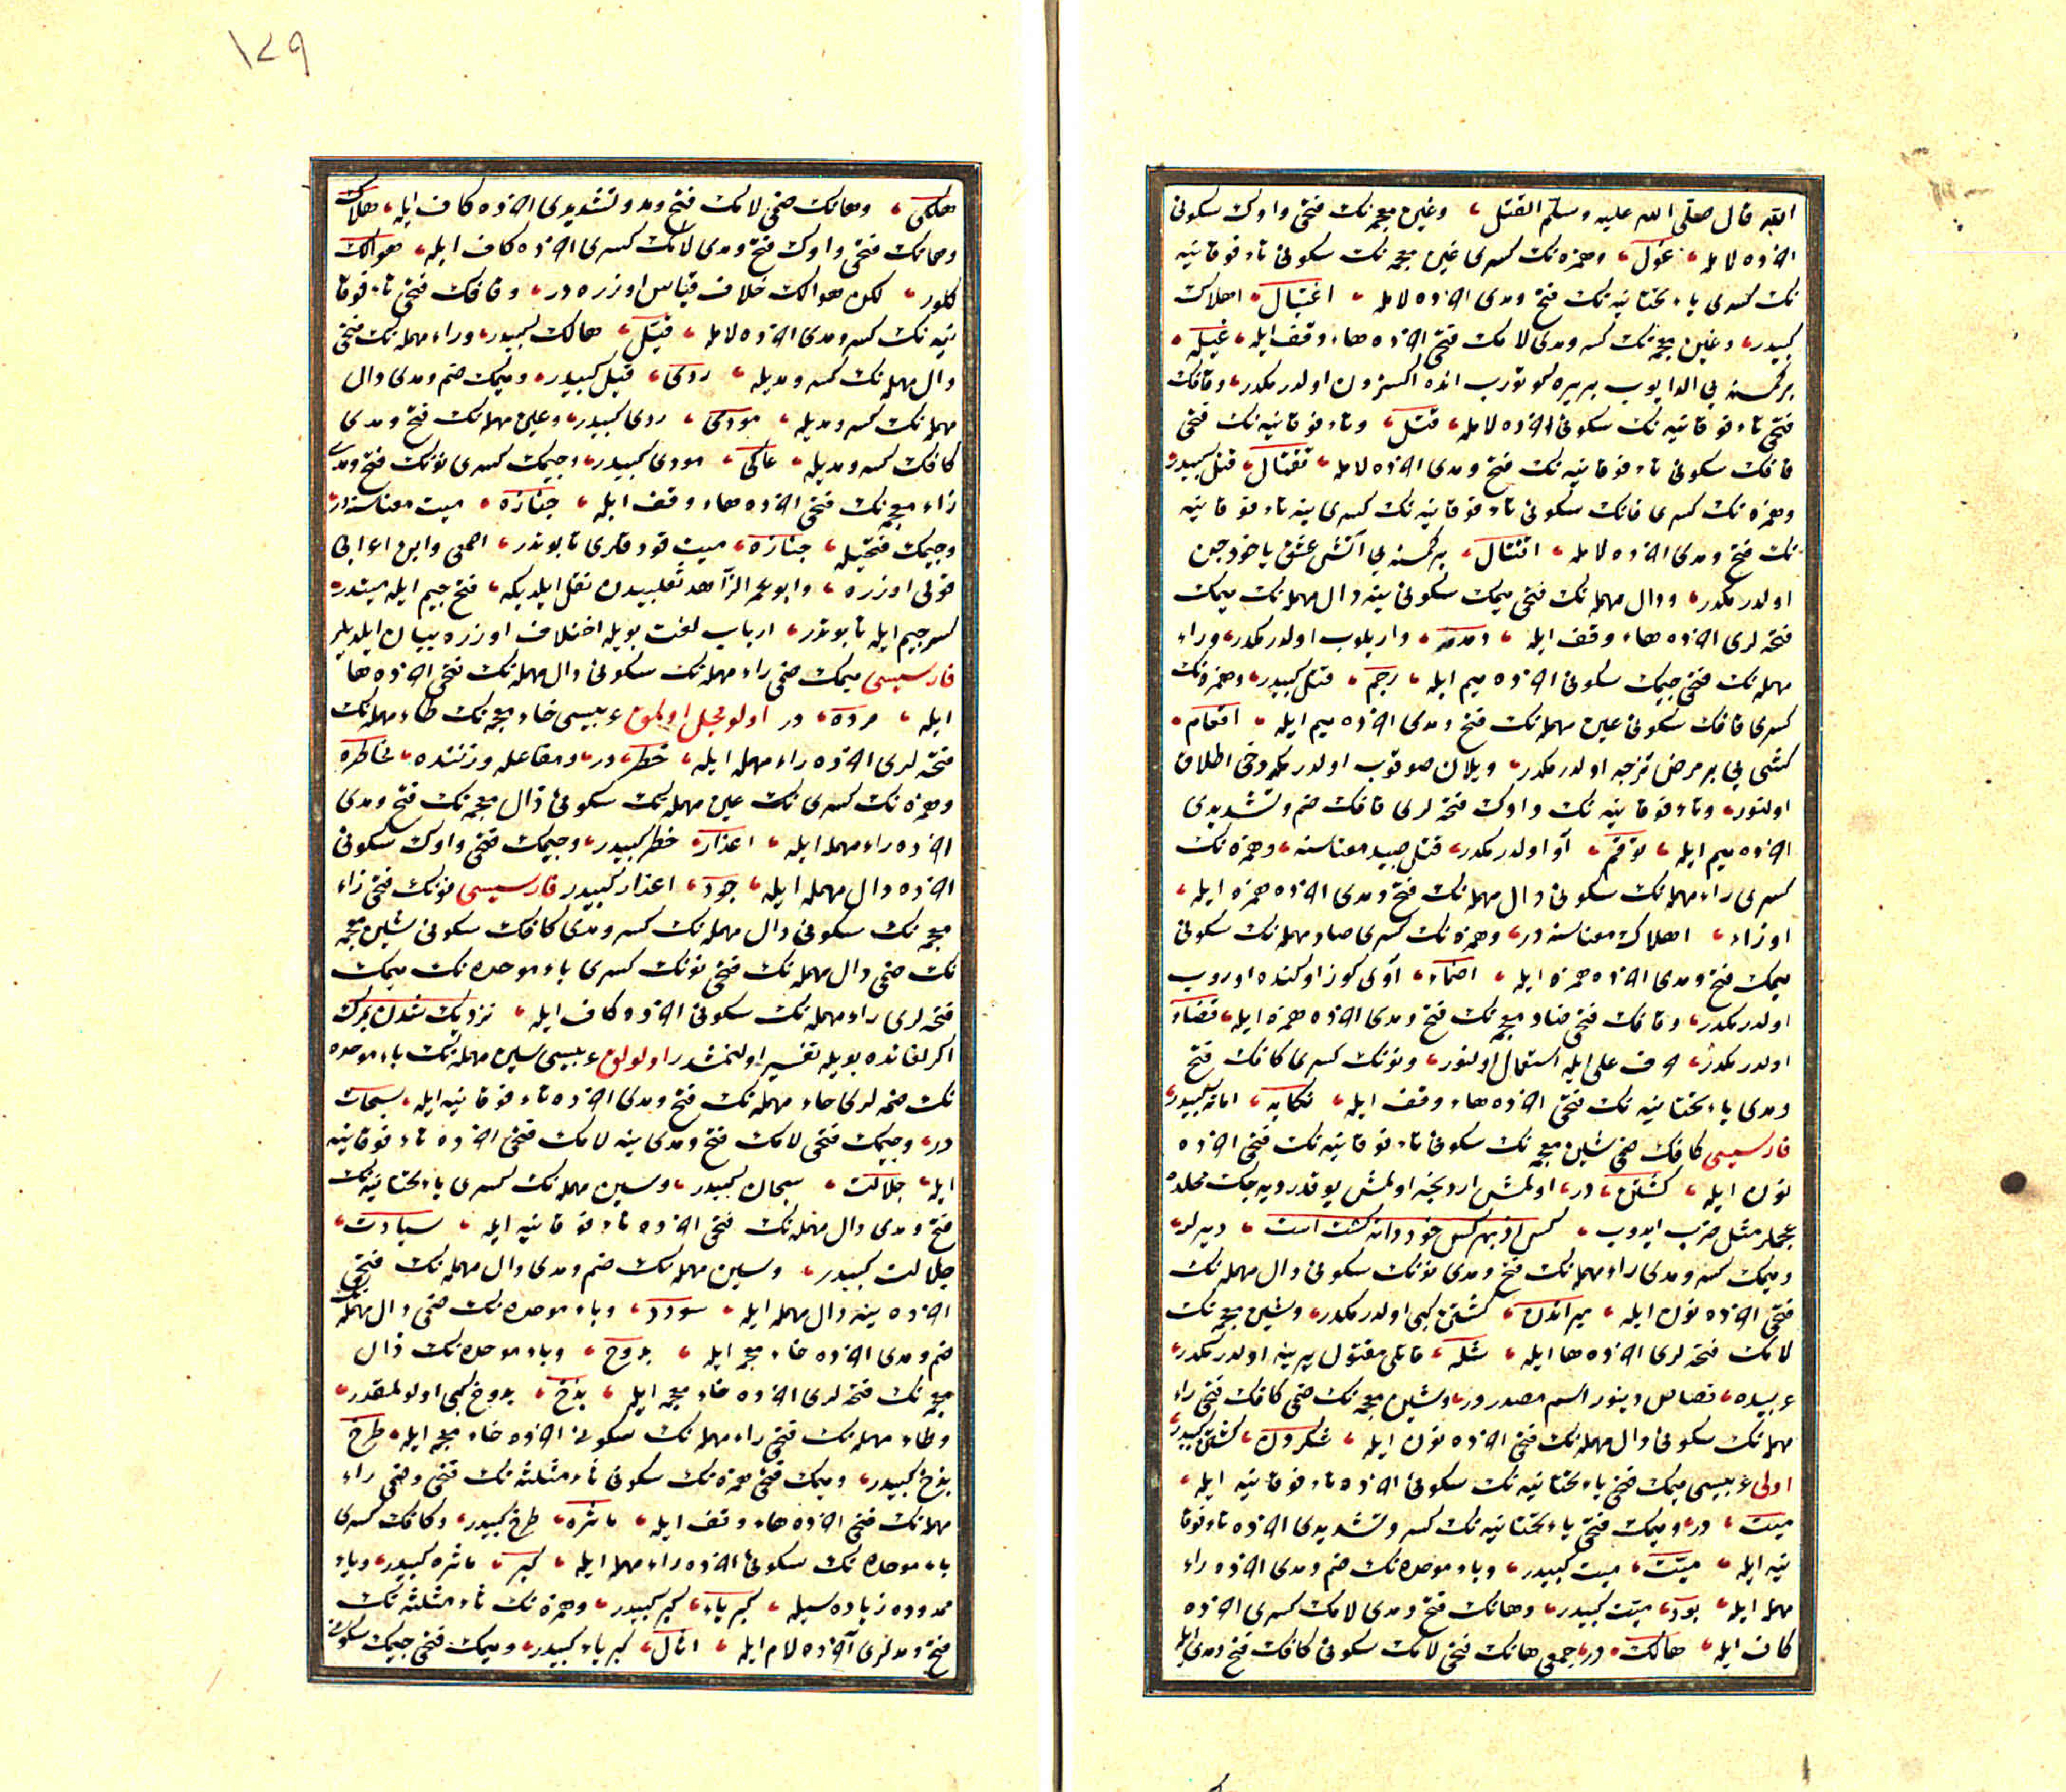 الله قال صلى الله عليه وسلم القتل ، وغين معجمه نك فتحى واوك سكونى
آخرده لامله ، غول ، وهمزه نك كسرى غين معجمه نك سكونى تاء فوقانيه
نك كسرى ياء تحتانيه نك فتح ومدى آخرده لامله ، اغتيال ، اهلاك
كبيدر ، وغين معجمه نك كسر ومدى لامك فتحى آخرده هاء وقف ايله ، غيله ،
بر كمسنه يى الدايوب بر يره كوتورب انده اولدرمكدر ، وقافك
فتحى تاء فوقانيه نك سكونى آخرده لامله ، قتل ، وتاء فوقانيه نك فتحى
قافك سكونى تاء فوقانيه نك فتح ومدى آخرده لامله ، تقتال ، قتل كبيدر ،
وهمزه نك كسرى قافك سكونى تاء فوقانيه نك كسرى ينه تاء فوقانيه
نك فتح ومدى آخرده لامله ، اقتتال ، بر كمسنه يى آتش عشق ياخود جن
اولدرمكدر ، ودال مهمله نك فتحى ميمك سكونى ينه دال مهمله نك ميمك
فتحه لرى آخرده هاء وقف ايله ، دمدمه ، واريلوب اولدرمكدر ، وراء
مهمله نك فتحى جيمك سكونى آخرده ميم ايله ، رجم ، قتل كبيدر ، وهمزه نك
كسرى قافك سكونى عين مهمله نك فتح ومدى آخرده ميم ايله ، اقعام ،
كشى يى بر مرض تزجه اولدرمكدر ، ويلان صوقوب اولدرمكه دخى اطلاق
اولنور ، وتاء فوقانيه نك واوك فتحه لرى قافك ضم وتشديدى
آخرده ميم ايله ، توقم ، آو اولدرمكدر ، قتل صيد معناسنه ، وهمزه نك
كسرى راء مهمله نك سكونى دال مهمله نك فتح ومدى آخرده همزه ايله ،
اهلاك معناسنه در ، وهمزه نك كسرى صاد مهمله نك سكونى
ميمك فتح ومدى آخرده همزه ايله ، اصماء ، آوى كوز اوكنده اوروب
اولدرمكدر ، وقافك فتحى ضاد معجمه نك فتح ومدى آخرده همزه ايله ، قضاء
اولدرمكدر ، حرف على ايله استعمال اولنور ، ونونك كسرى كافك فتح
ومدى ياء تحتانيه نك فتحى آخرده هاء وقف ايله ، نكايه ، اماته كبيدر ،
فارسيسى كافك ضمى شين معجمه نك سكونى تاء فوقانيه نك فتحى آخرده
نون ايله ، كشتن ، در ، اولمش ارديجنه اولمش يوقدر ديه جك محلده
عجملر مثل ضرب ايدوب ، كس از بهر كس خود را نه كشت است ، ديرلر ،
وميمك كسر ومدى راء مهمله نك فتح ومدى نونك سكونى دال مهمله نك
فتحى آخرده نون ايله ، ميراندن ، كشتن كبى اولدرمكدر ، وشين معجمه نك
لامك فتحه لرى آخرده ها ايله ، شله ، قاتلى مقتول يرينه اولدرمكدر ،
عربيده ، قصاص دينور اسم مصدردر ، وشين معجمه نك ضمى كافك فتحى راء
مهمله نك سكونى دال مهمله نك فتحى آخرده نون ايله ، شكردن ، كشتن كبيدر ،
اولى عربيسى ميمك فتحى ياء تحتانيه نك سكونى آخرده تاء فوقانيه ايله ،
ميت ، در ، وميمك فتحى ياء تحتانيه نك كسر وتشديدى آخرده تاء فوقا
نيه ايله ، ميّت ، ميت كبيدر ، وباء موحده نك ضم ومدى آخرده راء
مهمله ايله ، بور ، ميّت كبيدر ، وهانك فتح ومدى لامك كسرى آخرده
كاف ايله ، هالك ، در ، جمعى هانك فتحى لامك سكونى كافك فتح ومدى ايله
١٧٩
هلكى ، وهانك ضمى لامك فتح ومد وتشديدى آخرده كاف ايله ، هلاك
وهانك فتحى واوك فتح ومدى لامك كسرى آخرده كاف ايله ، هوالك
كلور ، لكن هوالك خلاف قياس اوزره در ، وقافك فتحى تاء فوقا
نيه نك كسر ومدى آخرده لامله ، قتيل ، هالك كبيدر ، وراء مهمله نك فتحى
دال مهمله نك كسر ومديله ، ردى ، قتيل كبيدر ، وميمك ضم ومدى دال
مهمله نك كسر ومديله ، مودى ، ردى كبيدر ، وعين مهمله نك فتح ومدى
كافك كسر ومديله ، عاكى ، مودى كبيدر ، وجيمك كسرى نونك فتح ومدى
زاء معجمه نك فتحى آخرده هاء وقف ايله ، جنازه ، ميت معناسنه در ،
وجيمك فتحيله ، جنازه ، ميت قودقلرى تابوتدر ، اصمعى وابن اعرابى
قولى اوزره ، وابو عمر الزاهد ثعلبيدن نقل ايلديكه ، فتح جيم ايله ميتدر ،
كسر جيم ايله تابوتدر ، ارباب لغت بويله اختلاف اوزره بيان ايلديلر
فارسيسى ميمك ضمى راء مهمله نك سكونى دال مهمله نك فتحى آخرده ها
ايله ، مرده ، در اولومجل اولمق عربيسى خاء معجمه نك طاء مهمله نك
فتحه لرى آخرده راء مهمله ايله ، خطر ، در ، ومفاعله وزننده ، مخاطره
وهمزه نك كسرى نك عين مهمله نك سكونى ذال معجمه نك فتح ومدى
آخرده راء مهمله ايله ، اعذار ، خطر كبيدر ، وجيمك فتحى واوك سكونى
آخرده دال مهمله ايله ، جود ، اعذار كبيدر فارسيسى نونك فتحى زاء
معجمه نك سكونى دال مهمله نك كسر ومدى كافك سكونى شين معجمه
نك ضمى دال مهمله نك فتحى نونك كسرى باء موحده نك ميمك
فتحه لرى راء مهمله نك سكونى آخرده كاف ايله ، نزديك شدن بمرك
اكر لغاتده بويله تفسير اولنمشدر اولولق عربيسى سين مهمله نك باء موحده
نك ضمه لرى حاء مهمله نك فتح ومدى آخرده تاء فوقانيه ايله ، سبحات
در ، وجيمك فتحى لامك فتح ومدى ينه لامك فتحى آخرده تاء فوقانيه
ايله ، جلالت ، سبحات كبيدر ، وسين مهمله نك كسرى ياء تحتانيه نك
فتح ومدى دال مهمله نك فتحى آخرده تاء فوقانيه ايله ، سيادت ،
جلالت كبيدر ، وسين مهمله نك ضم ومدى دال مهمله نك فتحى
آخرده ينه دال مهمله ايله ، سودد ، وباء موحده نك ضمى دال مهمله نك
ضم ومدى آخرده خاء معجمه ايله ، بدوخ ، وباء موحده نك ذال
معجمه نك فتحه لرى آخرده خاء معجمه ايله ، بذخ ، بدوخ كبى اولولقدر ،
وطاء مهمله نك فتحى راء مهمله نك سكونى آخرده خاء معجمه ايله ، طرخ
بذخ كبيدر ، وميمك فتحى همزه نك سكونى ثاء مثلثه نك فتحى وضمى راء
مهمله نك فتحى آخرده هاء وقف ايله ، مأثره ، طرخ كبيدر ، وكافك كسرى
باء موحده نك سكونى آخرده راء مهمله ايله ، كبر ، مأثره كبيدر ، وياء
ممدوده زياده سيله ، كبرياء ، كبر كبيدر ، وهمزه نك ثاء مثلثه نك
فتح ومدلرى آخرده لام ايله ، اثال ، كبرياء كبيدر ، وميمك فتحى جيمك سكونى